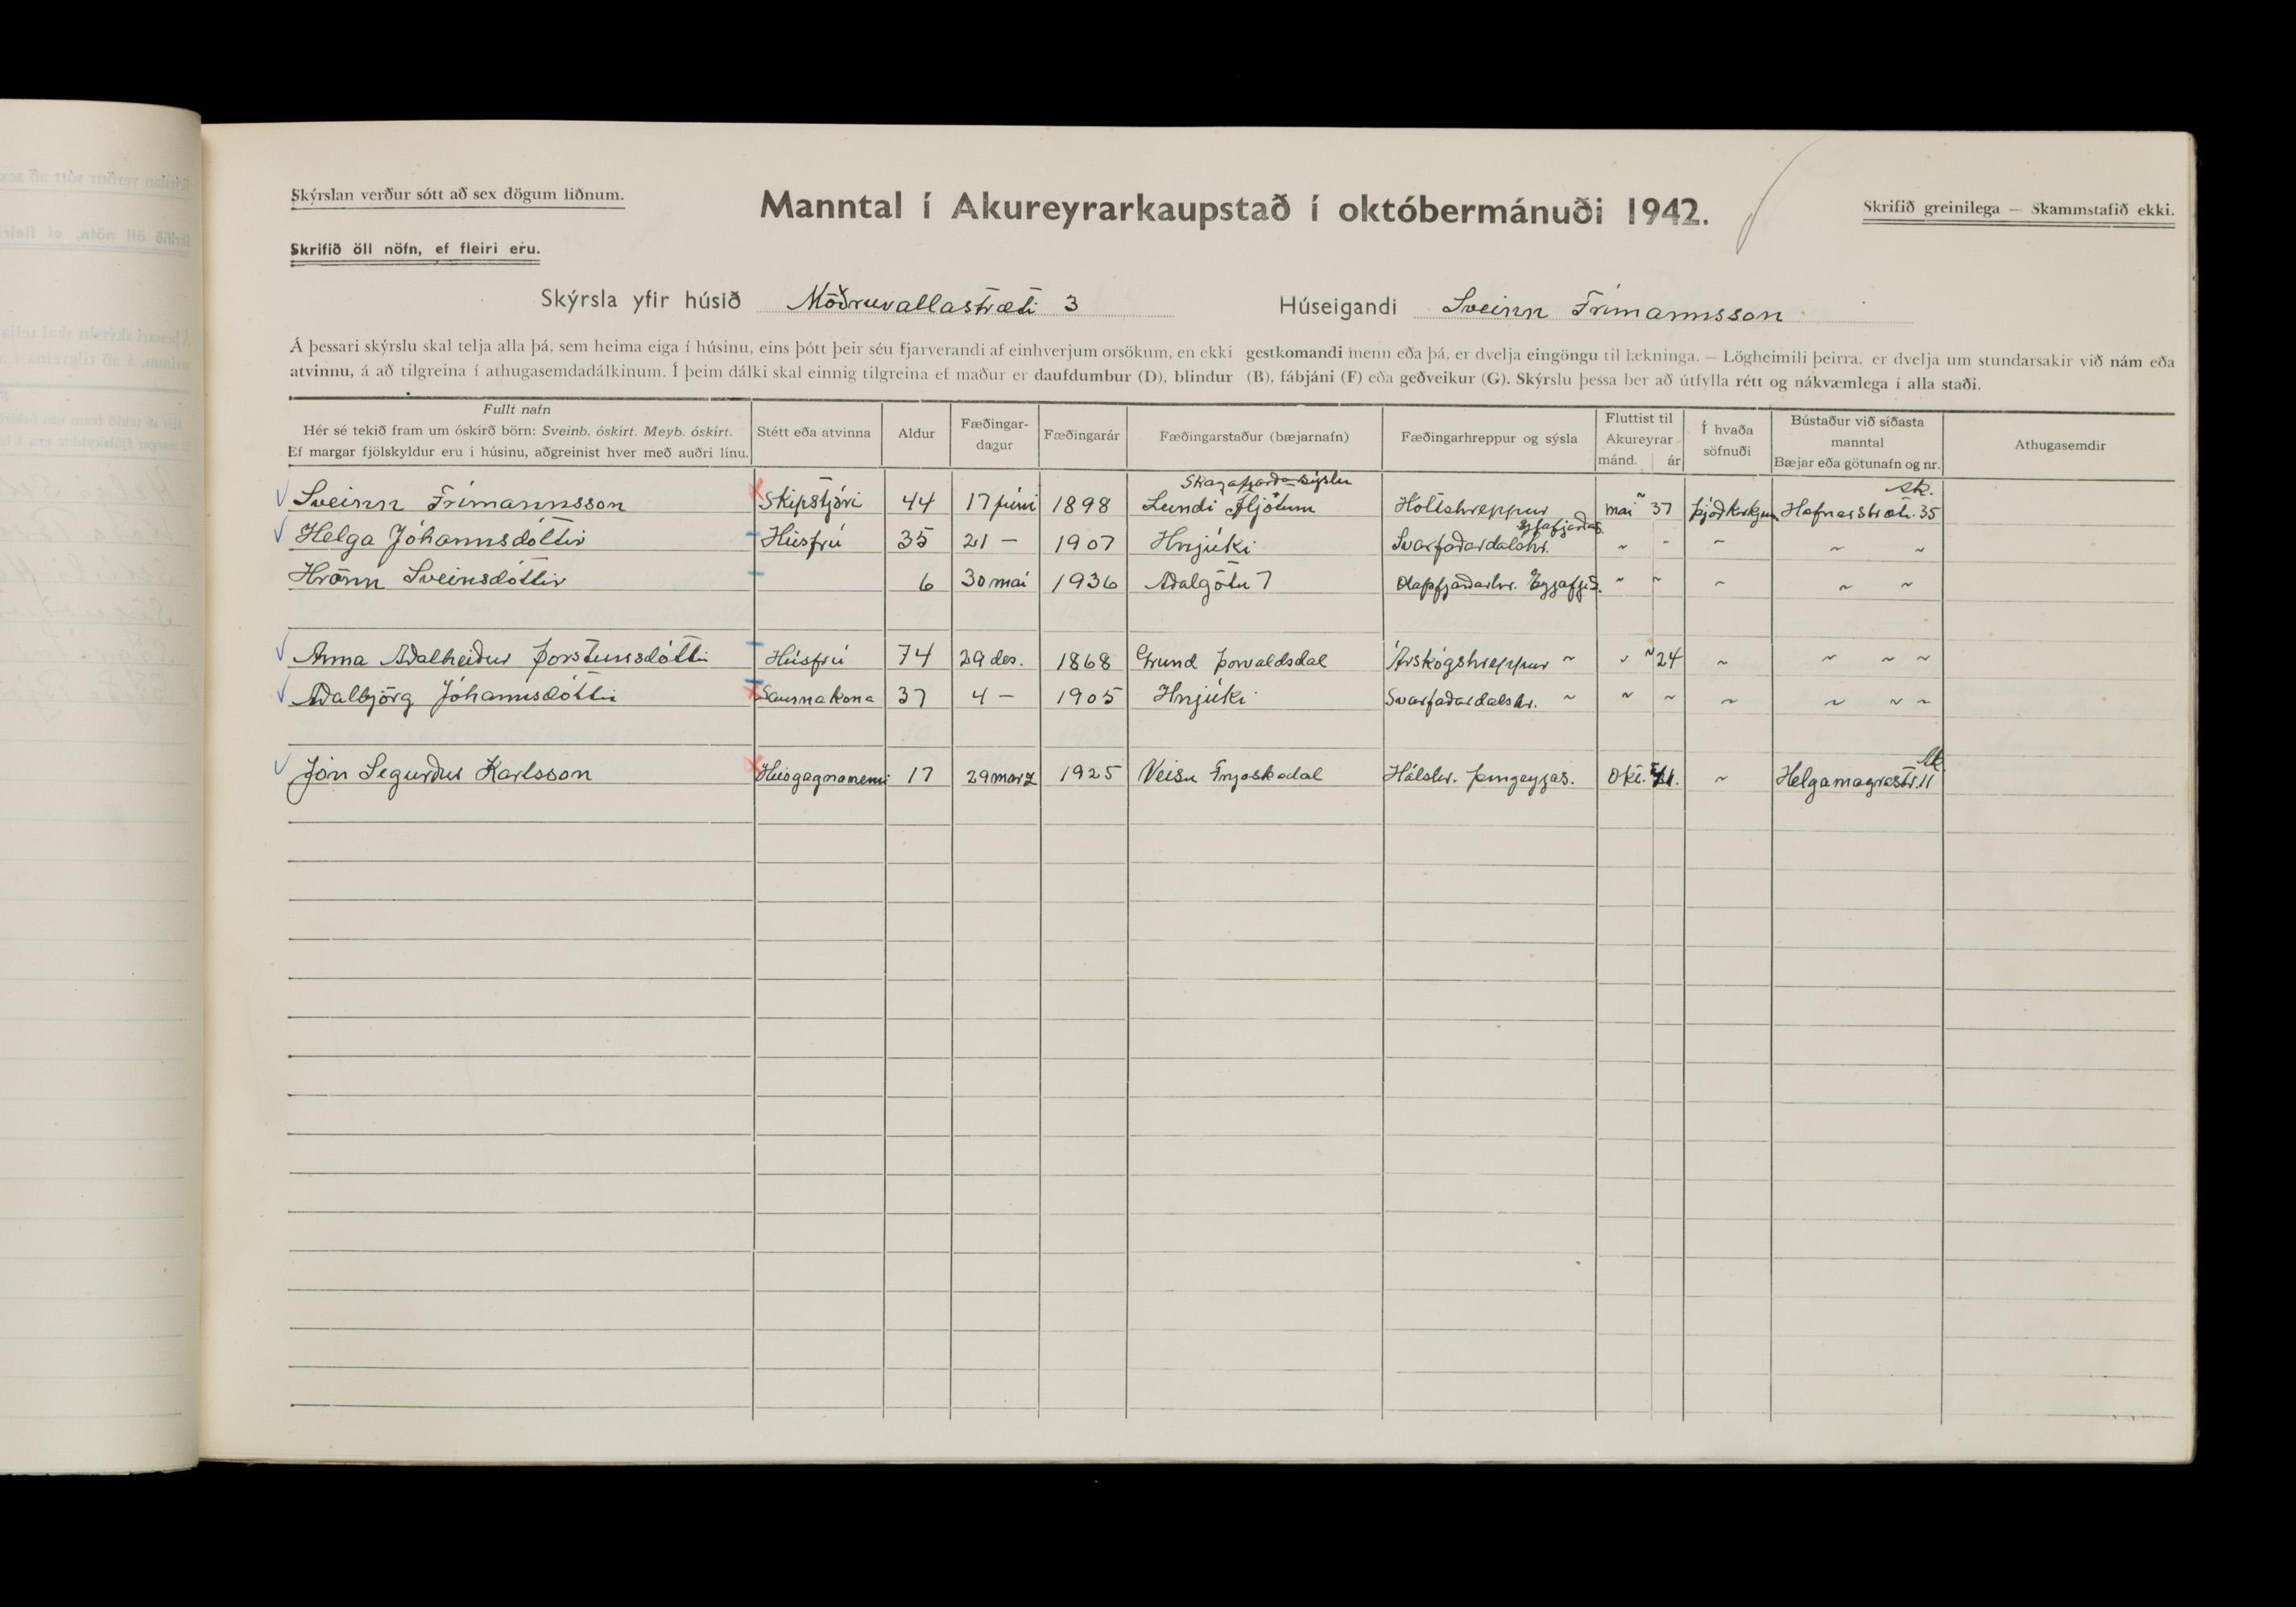 Skýrslan verður sótt að sex dögum liðnum.
Manntal í Akureyrarkaupstað í októbermánuði 1942.
Skrifið greinilega — Skammstafið ekki.
Skrifið öll nöfn, ef fleiri eru.
Skýrsla yfir húsið Möðruvallastræti 3
Húseigandi Sveinn Frímannsson
Á þessari skýrslu skal telja alla þá, sem heima eiga í húsinu, eins þótt þeir séu fjarverandi af einhverjum orsökum, en ekki gestkomandi menn eða þá, er dvelja eingöngu til lækninga. — Lögheimili þeirra, er dvelja um stundarsakir við nám eða
atvinnu, á að tilgreina í athugasemdadálkinum. Í þeim dálki skal einnig tilgreina ef maður er daufdumbur (D), blindur (B), fábjáni (F) eða geðveikur (G). Skýrslu þessa ber að útfylla rétt og nákvæmlega í alla staði.
Fullt nafn
Hér sé tekið fram um óskírð börn: Sveinb. óskírt. Meyb. óskírt.
Ef margar fjölskyldur eru í húsinu, aðgreinist hver með auðri línu.
Stétt eða atvinna
Aldur
Fæðingar-
dagur
Fæðingarár
Fæðingarstaður (bæjarnafn)
Fæðingarhreppur og sýsla
Fluttist til
Akureyrar
mánd. ár
Í hvaða
söfnuði
Bústaður við síðasta
manntal
Bæjar eða götunafn og nr.
Athugasemdir
Skagafjarðarsýslu
Ak.
Sveinn Frímannsson Skipstjóri 44 17 júní 1898 Lundi Fljótum Holtshreppur mai ~ 37 þjóðkirkjun Hafnarstræti. 35
Eyjafjarðas.
Helga Jóhannsdóttir Húsfrú 35 21 — 1907 Hnjúki Svarfaðardalshr. ~ - ~ ~ ~
Hrönn Sveinsdóttir 6 30 mai 1936 Aðalgötu 7 Olafsfjarðarhr. Eyjafj.s. ~ ~ ~ ~ ~
Anna Aðalheiður Þorsteinsdóttir Húsfrú 74 29 des. 1868 Grund Þorvaldsdal Árskógshreppur ~ ~ ~ 24 ~ ~ ~ ~
Aðalbjörg Jóhannsdóttir Saumakona 37 4 — 1905 Hnjúki Svarfaðardalshr. ~ ~ ~ ~ ~ ~ ~
Ak.
Jón Sigurður Karlsson Húsgagnanemi 17 29 marz 1925 Veisu Fnjoskadal Hálshr. Þingeyjas. Okt. 41. ~ Helgamagrastr. 11